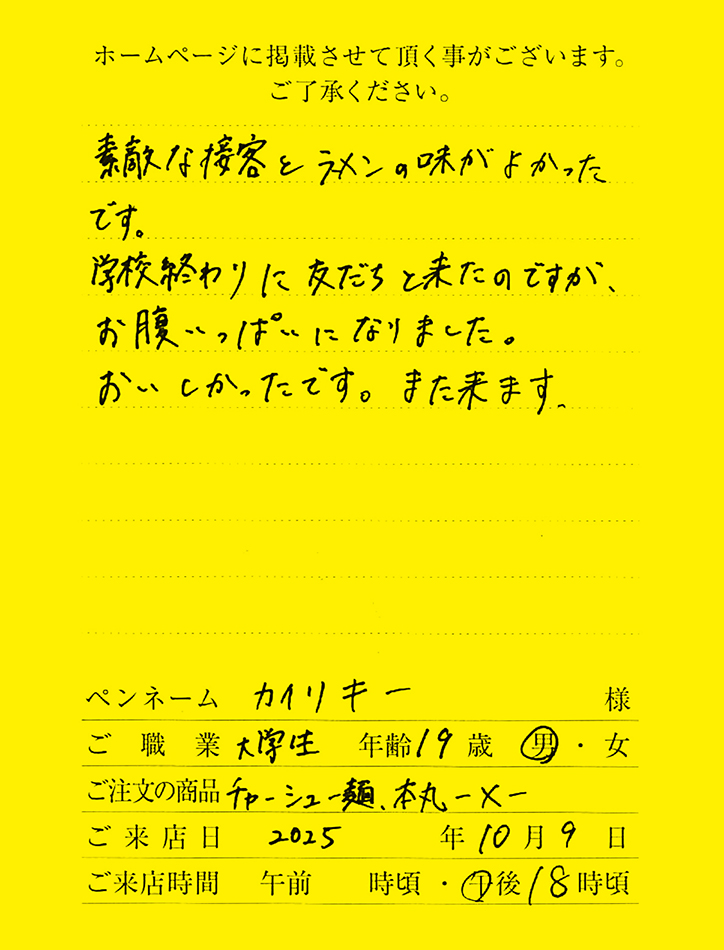 ホームページに掲載させて頂く事がございます。
ご了承ください。
素敵な接客とラーメンの味がよかった
です。
学校終わりに友だちと来たのですが、
お腹いっぱいになりました。
おいしかったです。また来ます。
ペンネーム カイリキー 様
ご職業 大学生 年齢 19 歳 男・女
ご注文の商品 チャーシュー麺、本丸ーメー
ご来店日 2025 年 10 月 9 日
ご来店時間 午前 時頃・午後 18 時頃